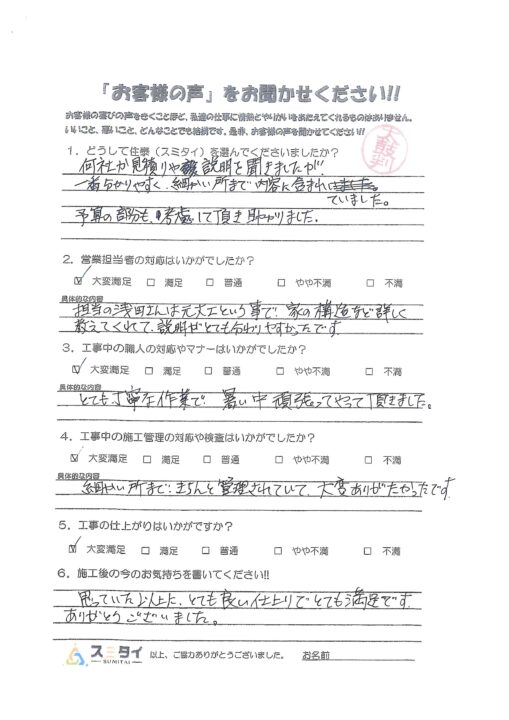 「お客様の声」をお聞かせください!!
お客様の喜びの声をきくことほど、私達の仕事に情熱とやりがいをあたえてくれるものはありません。
いいこと、悪いこと、どんなことでも結構です。是非、お客様の声を聞かせてください!!
大鼓判
1．どうして住泰（スミタイ）を選んでくださいましたか？
何社か見積りや説明を聞きましたが、
一番分かりやすく、細かい所まで内容に含まれ
ていました。
予算の部分も、考慮して頂き助かりました。
2．営業担当者の対応はいかがでしたか？
☑ 大変満足 □ 満足 □ 普通 □ やや不満 □ 不満
具体的な内容
担当の浅田さんは元大工という事で、家の構造など詳しく
教えてくれて、説明がとても分わりやすかったです。
3．工事中の職人の対応やマナーはいかがでしたか？
☑ 大変満足 □ 満足 □ 普通 □ やや不満 □ 不満
具体的な内容
とても丁寧な作業で、暑い中頑張ってやって頂きました。
4．工事中の施工管理の対応や検査はいかがでしたか？
☑ 大変満足 □ 満足 □ 普通 □ やや不満 □ 不満
具体的な内容
細かい所まで、きちんと管理されていて、大変ありがたかったです。
5．工事の仕上がりはいかがですか？
☑ 大変満足 □ 満足 □ 普通 □ やや不満 □ 不満
6．施工後の今のお気持ちを書いてください!!
思っていた以上に、とても良い仕上りでとても満足です。
ありがとうございました。
スミタイ
SUMITAI
以上、ご協力ありがとうございました。 お名前